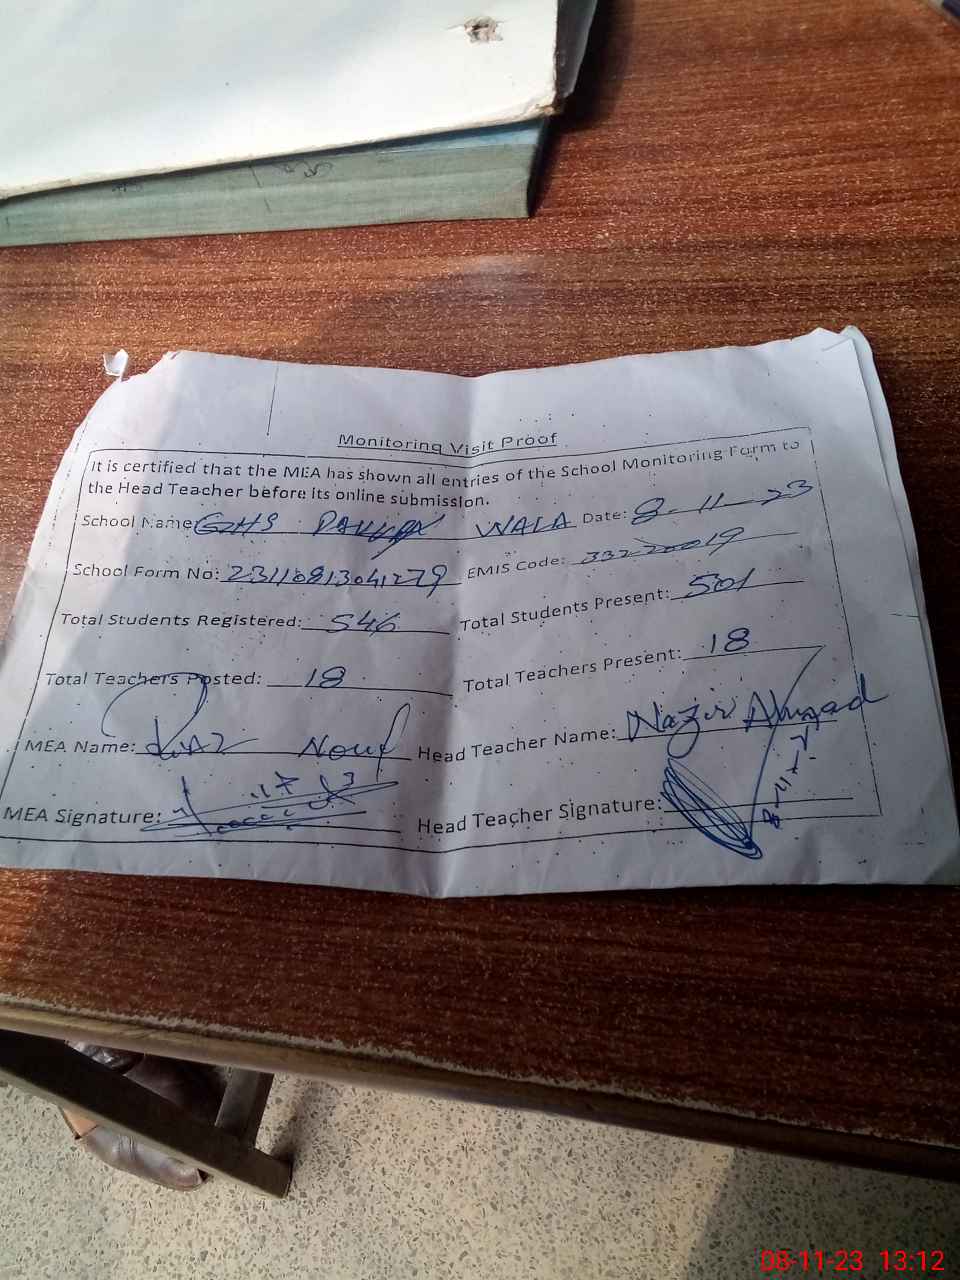 Monitoring Visit Proof
It is certified that the MEA has shown all entries of the School Monitoring Form to
the Head Teacher before its online submission.
School Name: GHS WALA Date: 8-11-23
School Form No: 23110813041279 EMIS Code: 33220019
Total Students Registered: 546 Total Students Present: 501
Total Teachers Posted: 18 Total Teachers Present: 18
MEA Name: Head Teacher Name: Nazir Ahmad
MEA Signature: Head Teacher Signature:
08-11-23 13:12